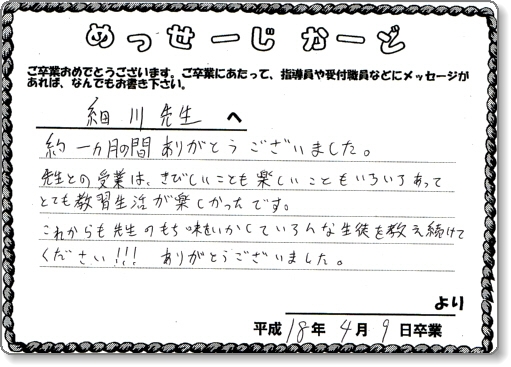 めっせーじ かーど
ご卒業おめでとうございます。ご卒業にあたって、指導員や受付職員などにメッセージが
あれば、なんでもお書き下さい。
細川先生 へ
約一ヵ月の間ありがとうございました。
先生との受業は、きびしいことも楽しいこともいろいろあって
とても教習生活が楽しかったです。
これからも先生のもち味をいかしていろんな生徒を教え続けて
ください!!! ありがとうございました。
より
平成18年4月9日卒業